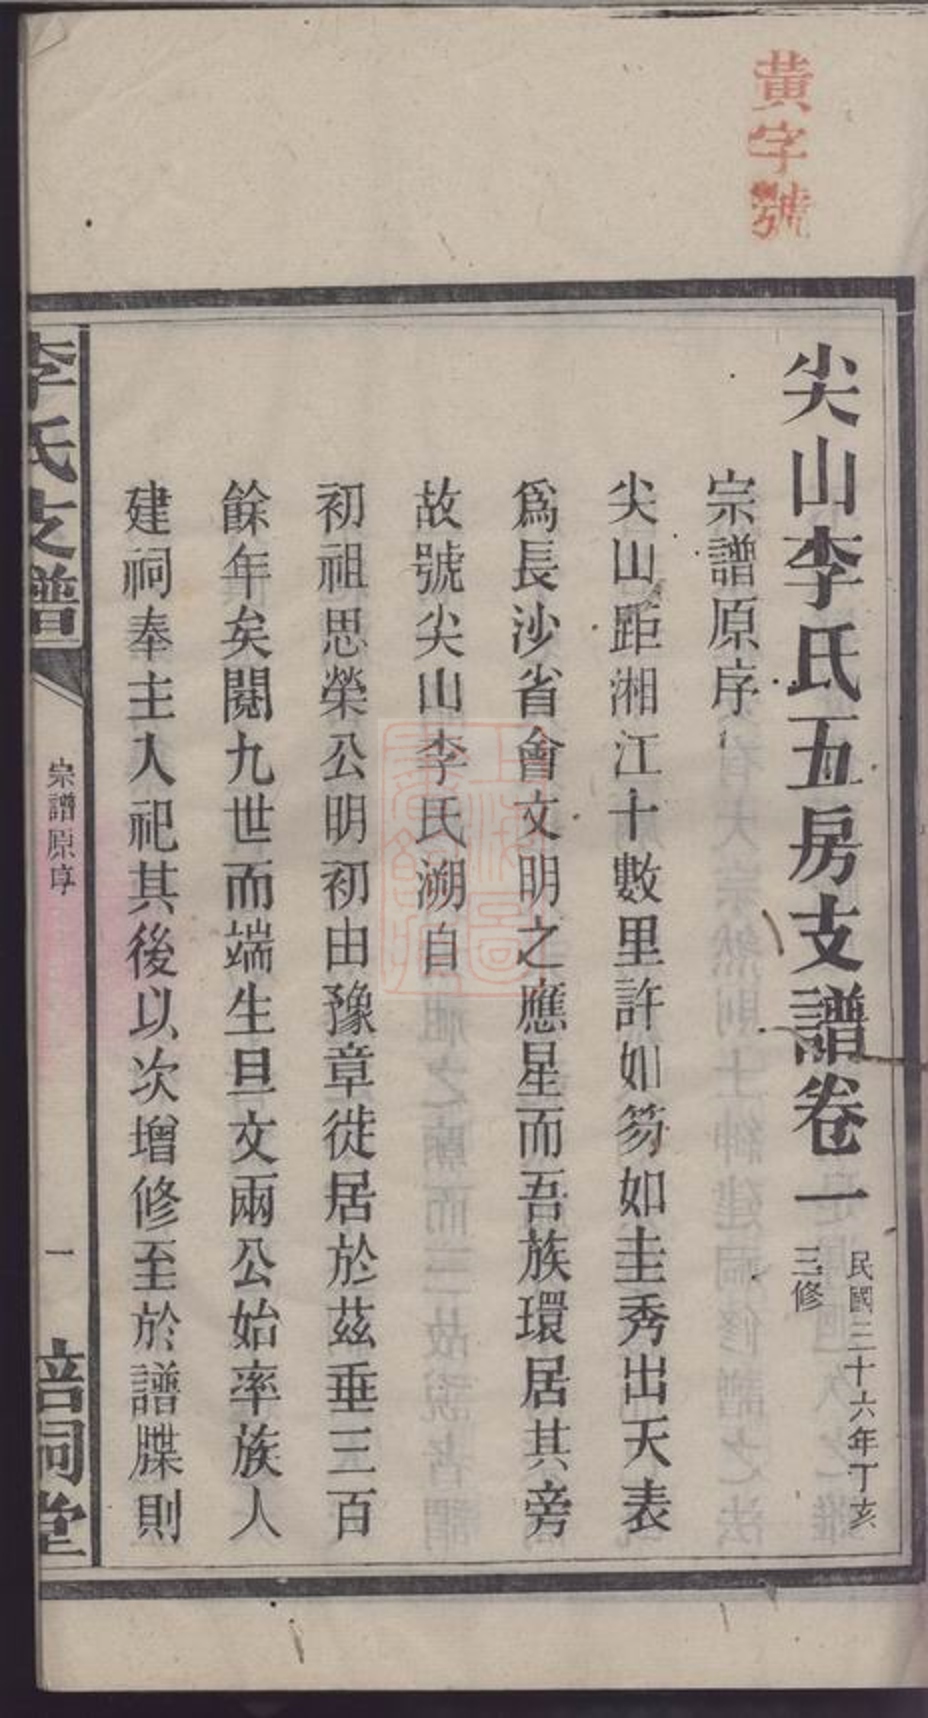 黃字號
尖山李氏五房支譜卷一
民國三十六年丁亥
三修
宗譜原序
尖山距湘江十數里許如笏如圭秀出天表
爲長沙省會文明之應星而吾族環居其旁
故號尖山李氏溯自
初祖思榮公明初由豫章徙居於茲垂三百
餘年矣閱九世而端生旦文兩公始率族人
建祠奉主入祀其後以次增修至於譜牒則
李氏支譜
宗譜原序
一